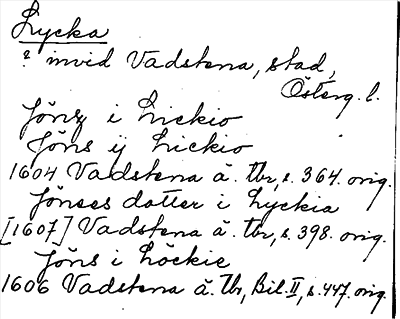 Lycka
? invid Vadstena, stad,
Österg. l.
Jönz i Lickio
Jöns ij Lickio
1604 Vadstena ä. tbr, s. 364. orig.
Jönses dotter i Lyckia
[1607] Vadstena ä. tbr, s. 398. orig.
Jöns i Löckie
1606 Vadstena ä. tbr, Bil. II, s. 447. orig.